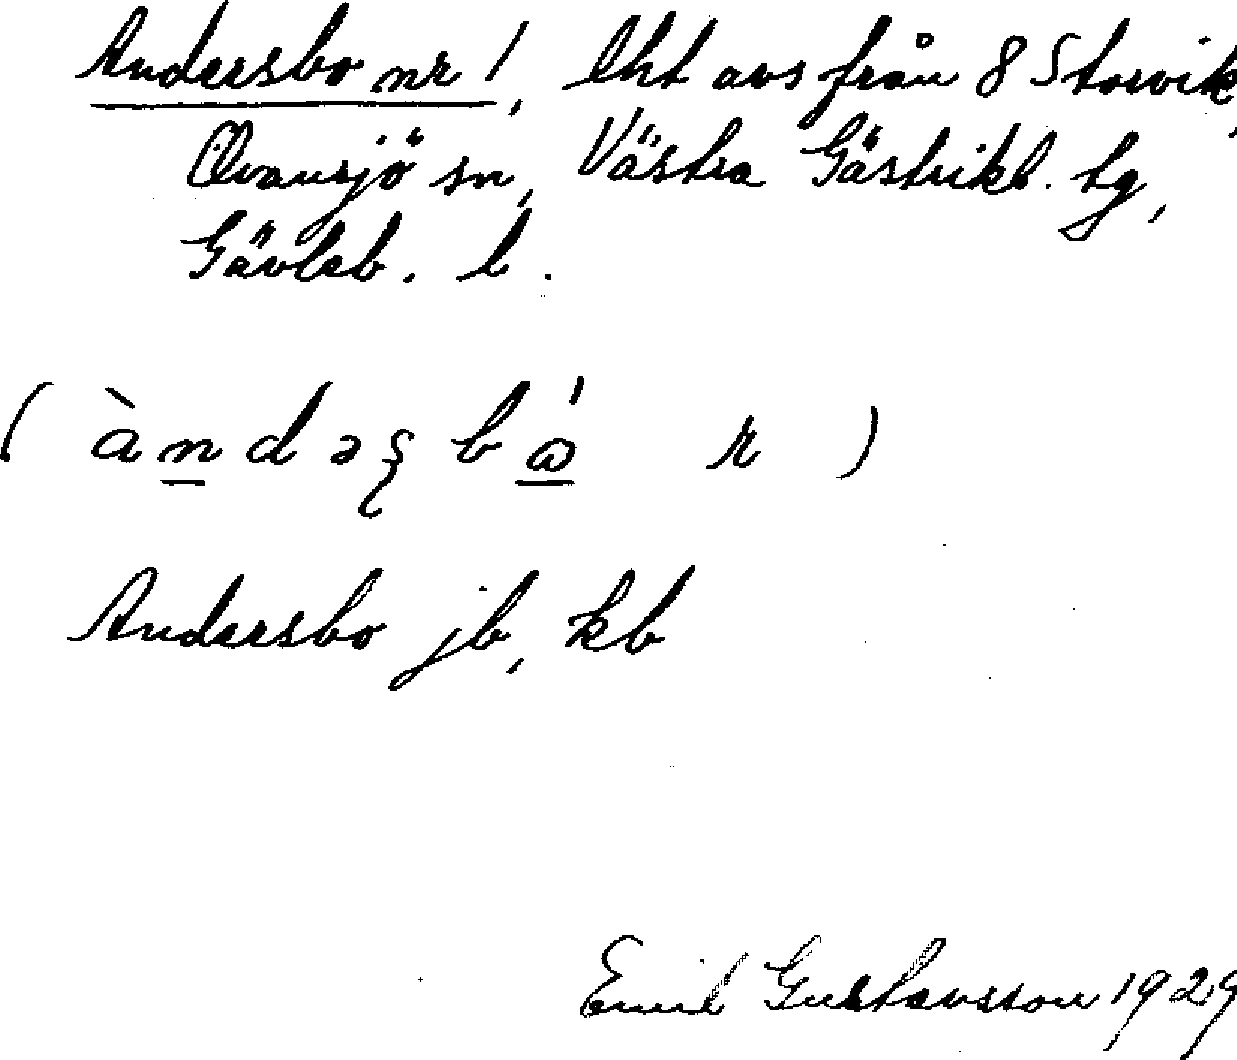 Andersbo nr 1, lht avs från 8 Storvik,
Ovansjö sn, Västra Gästrikl. tg,
Gävleb. l.
(àndəʂbɷ́ r)
Andersbo jb, kb
Emil Gustavsson 1929